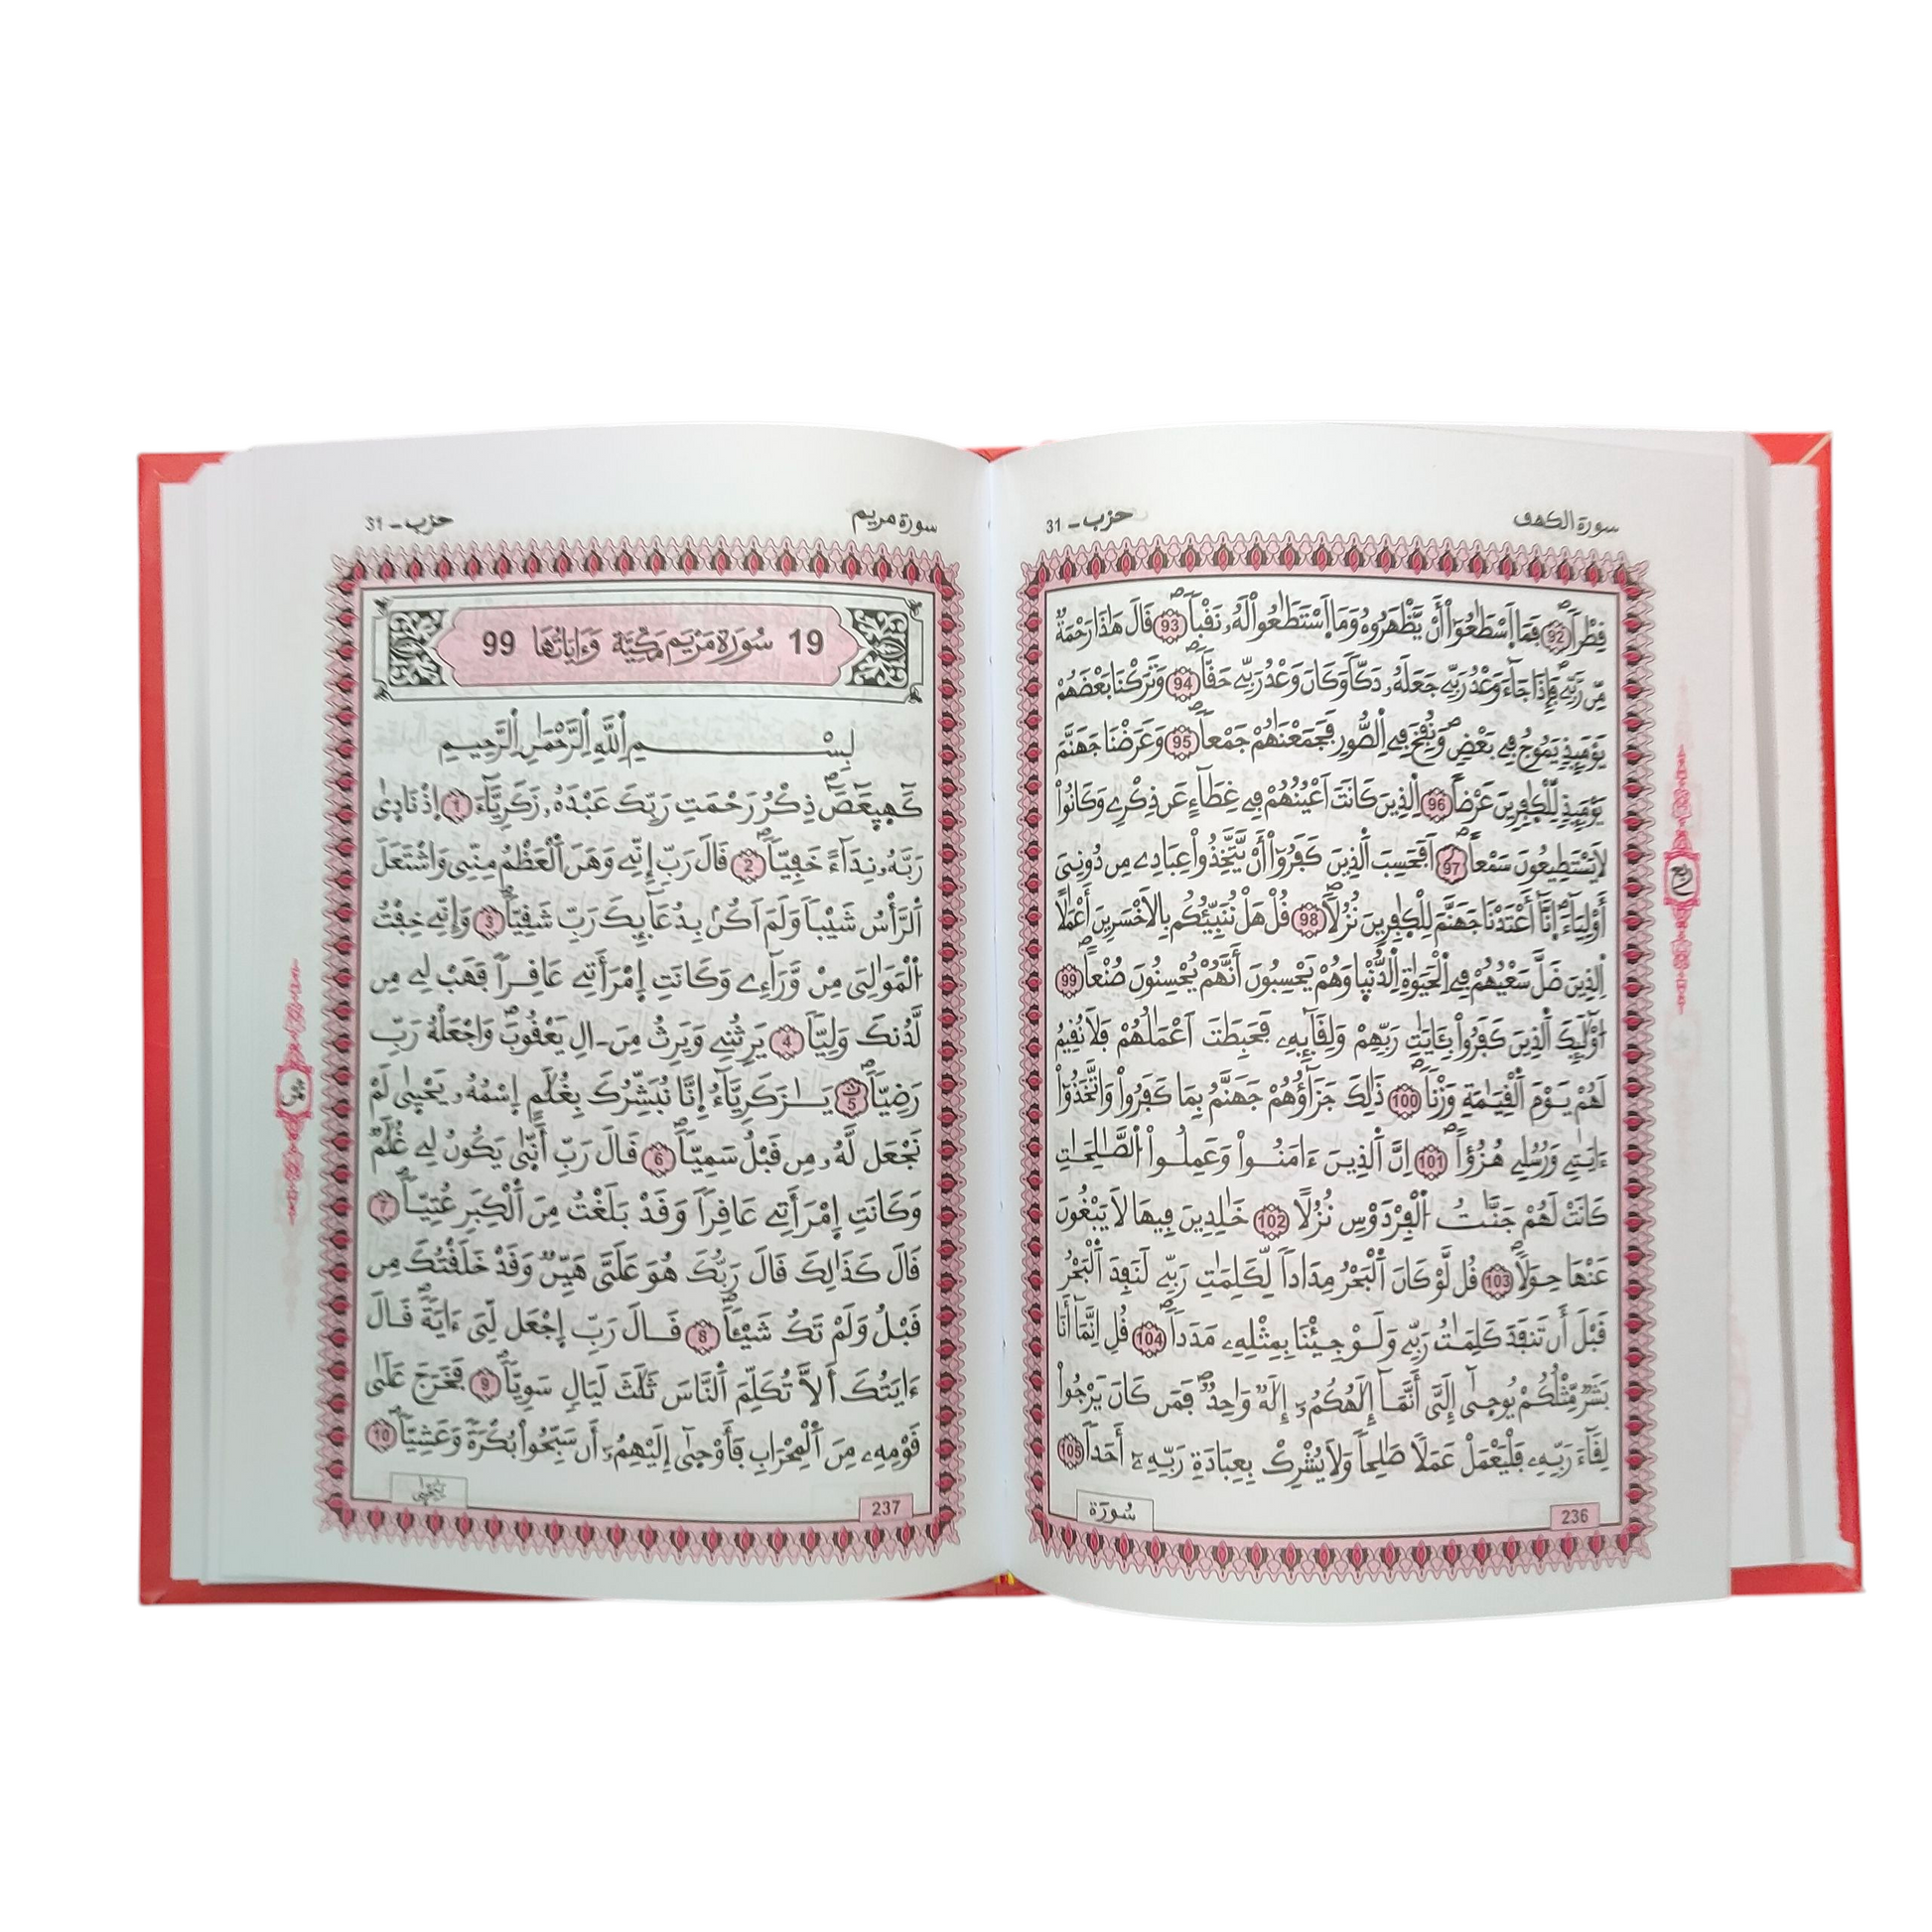 سورة الكهف
حزب ـ 31
فِطْراًۖ 92 فَمَا اَ۪سْطَٰعُوٓاْ أَنْ يَّظْهَرُوهُ وَمَا اَ۪سْتَطَٰعُواْ لَهُۥ نَقْباًۖ 93 قَالَ هَٰذَا رَحْمَةٌ
مِّن رَّبِّےۖ فَإِذَا جَآءَ وَعْدُ رَبِّے جَعَلَهُۥ دَكّاًۖ وَكَانَ وَعْدُ رَبِّے حَقّاًۖ 94 وَتَرَكْنَا بَعْضَهُمْ
يَوْمَئِذٖ يَمُوجُ فِے بَعْضٖۖ وَنُفِخَ فِے اِ۬لصُّورِ فَجَمَعْنَٰهُمْ جَمْعاًۖ 95 وَعَرَضْنَا جَهَنَّمَ
يَوْمَئِذٖ لِّلْكٰ۪فِرِينَ عَرْضاً 96 اِ۬لذِينَ كَانَتَ اَعْيُنُهُمْ فِے غِطَآءٍ عَن ذِكْرِے وَكَانُواْ
لَا يَسْتَطِيعُونَ سَمْعاًۖ 97 اَفَحَسِبَ اَ۬لذِينَ كَفَرُوٓاْ أَنْ يَّتَّخِذُواْ عِبَادِے مِن دُونِيَ
أَوْلِيَآءَۖ انَّآ أَعْتَدْنَا جَهَنَّمَ لِلْكٰ۪فِرِينَ نُزُلاًۖ 98 قُلْ هَلْ نُنَبِّئُكُم بِالَاخْسَرِينَ أَعْمَٰلاً
اِ۬لذِينَ ضَلَّ سَعْيُهُمْ فِے اِ۬لْحَيَوٰةِ اِ۬لدُّنْي۪ا وَهُمْ يَحْسِبُونَ أَنَّهُمْ يُحْسِنُونَ صُنْعاًۖ 99
ا۟وْلَٰٓئِكَ اَ۬لذِينَ كَفَرُواْ بِـَٔايَٰتِ رَبِّهِمْ وَلِقَآئِهِۦ فَحَبِطَتَ اَعْمَٰلُهُمْ فَلَا نُقِيمُ
لَهُمْ يَوْمَ اَ۬لْقِيَٰمَةِ وَزْناًۖ 100 ذَٰلِكَ جَزَآؤُهُمْ جَهَنَّمُ بِمَا كَفَرُواْ وَاتَّخَذُوٓاْ
ءَايَٰتِے وَرُسُلِے هُزُؤاًۖ 101 اِنَّ اَ۬لذِينَ ءَامَنُواْ وَعَمِلُواْ اُ۬لصَّٰلِحَٰتِ
كَانَتْ لَهُمْ جَنَّٰتُ اُ۬لْفِرْدَوْسِ نُزُلاً 102 خَٰلِدِينَ فِيهَا لَا يَبْغُونَ
عَنْهَا حِوَلاًۖ 103 قُل لَّوْ كَانَ اَ۬لْبَحْرُ مِدَاداً لِّكَلِمَٰتِ رَبِّے لَنَفِدَ اَ۬لْبَحْرُ
قَبْلَ أَن تَنفَدَ كَلِمَٰتُ رَبِّے وَلَوْ جِئْنَا بِمِثْلِهِۦ مَدَداًۖ 104 قُلِ اِنَّمَآ أَنَا
بَشَرٌ مِّثْلُكُمْ يُوح۪يٰٓ إِلَيَّ أَنَّمَآ إِلَٰهُكُمُۥٓ إِلَٰهٌ وَٰحِدٌۖ فَمَن كَانَ يَرْجُواْ
لِقَآءَ رَبِّهِۦ فَلْيَعْمَلْ عَمَلاً صَٰلِحاً وَلَا يُشْرِكْ بِعِبَادَةِ رَبِّهِۦٓ أَحَداًۖ 105
سُورَة
236
ربع
سورة مريم
حزب ـ 31
19 سُورَة مَرْيَم مَكِّيَّة وَءَايَاتُهَا 99
بِسْمِ اِ۬للَّهِ اِ۬لرَّحْمَٰنِ اِ۬لرَّحِيمِ
كٓه۪ي۪عٓصٓۖ ذِكْرُ رَحْمَتِ رَبِّكَ عَبْدَهُۥ زَكَرِيَّآءَ 1 اِذْ نَاد۪يٰ
رَبَّهُۥ نِدَآءً خَفِيّاًۖ 2 قَالَ رَبِّ إِنِّے وَهَنَ اَ۬لْعَظْمُ مِنِّے وَاشْتَعَلَ
اَ۬لرَّأْسُ شَيْباً وَلَمَ اَكُنۢ بِدُعَآئِكَ رَبِّ شَقِيّاًۖ 3 وَإِنِّے خِفْتُ
اُ۬لْمَوَٰلِيَ مِنْ وَّرَآءِے وَكَانَتِ إِمْرَأَتِے عَاقِراً فَهَبْ لِے مِن
لَّدُنكَ وَلِيّاً 4 يَرِثُنِے وَيَرِثُ مِنَ ـ الِ يَعْقُوبَۖ وَاجْعَلْهُ رَبِّ
رَضِيّاًۖ 5 يَٰزَكَرِيَّآءُ اِنَّا نُبَشِّرُكَ بِغُلَٰمٍ اِ۪سْمُهُۥ يَحْي۪يٰ لَمْ
نَجْعَل لَّهُۥ مِن قَبْلُ سَمِيّاًۖ 6 قَالَ رَبِّ أَنّ۪يٰ يَكُونُ لِے غُلَٰمٌ
وَكَانَتِ إِمْرَأَتِے عَاقِراً وَقَدْ بَلَغْتُ مِنَ اَ۬لْكِبَرِ عُتِيّاًۖ 7
قَالَ كَذَٰلِكَ قَالَ رَبُّكَ هُوَ عَلَيَّ هَيِّنٌ وَقَدْ خَلَقْتُكَ مِن
قَبْلُ وَلَمْ تَكُ شَيْـٔاًۖ 8 قَالَ رَبِّ اِ۪جْعَل لِّيَ ءَايَةًۖ قَالَ
ءَايَتُكَ أَلَّا تُكَلِّمَ اَ۬لنَّاسَ ثَلَٰثَ لَيَالٖ سَوِيّاًۖ 9 فَخَرَجَ عَلَيٰ
قَوْمِهِۦ مِنَ اَ۬لْمِحْرَابِ فَأَوْح۪يٰٓ إِلَيْهِمُۥٓ أَن سَبِّحُواْ بُكْرَةً وَعَشِيّاًۖ 10
237
ثمن